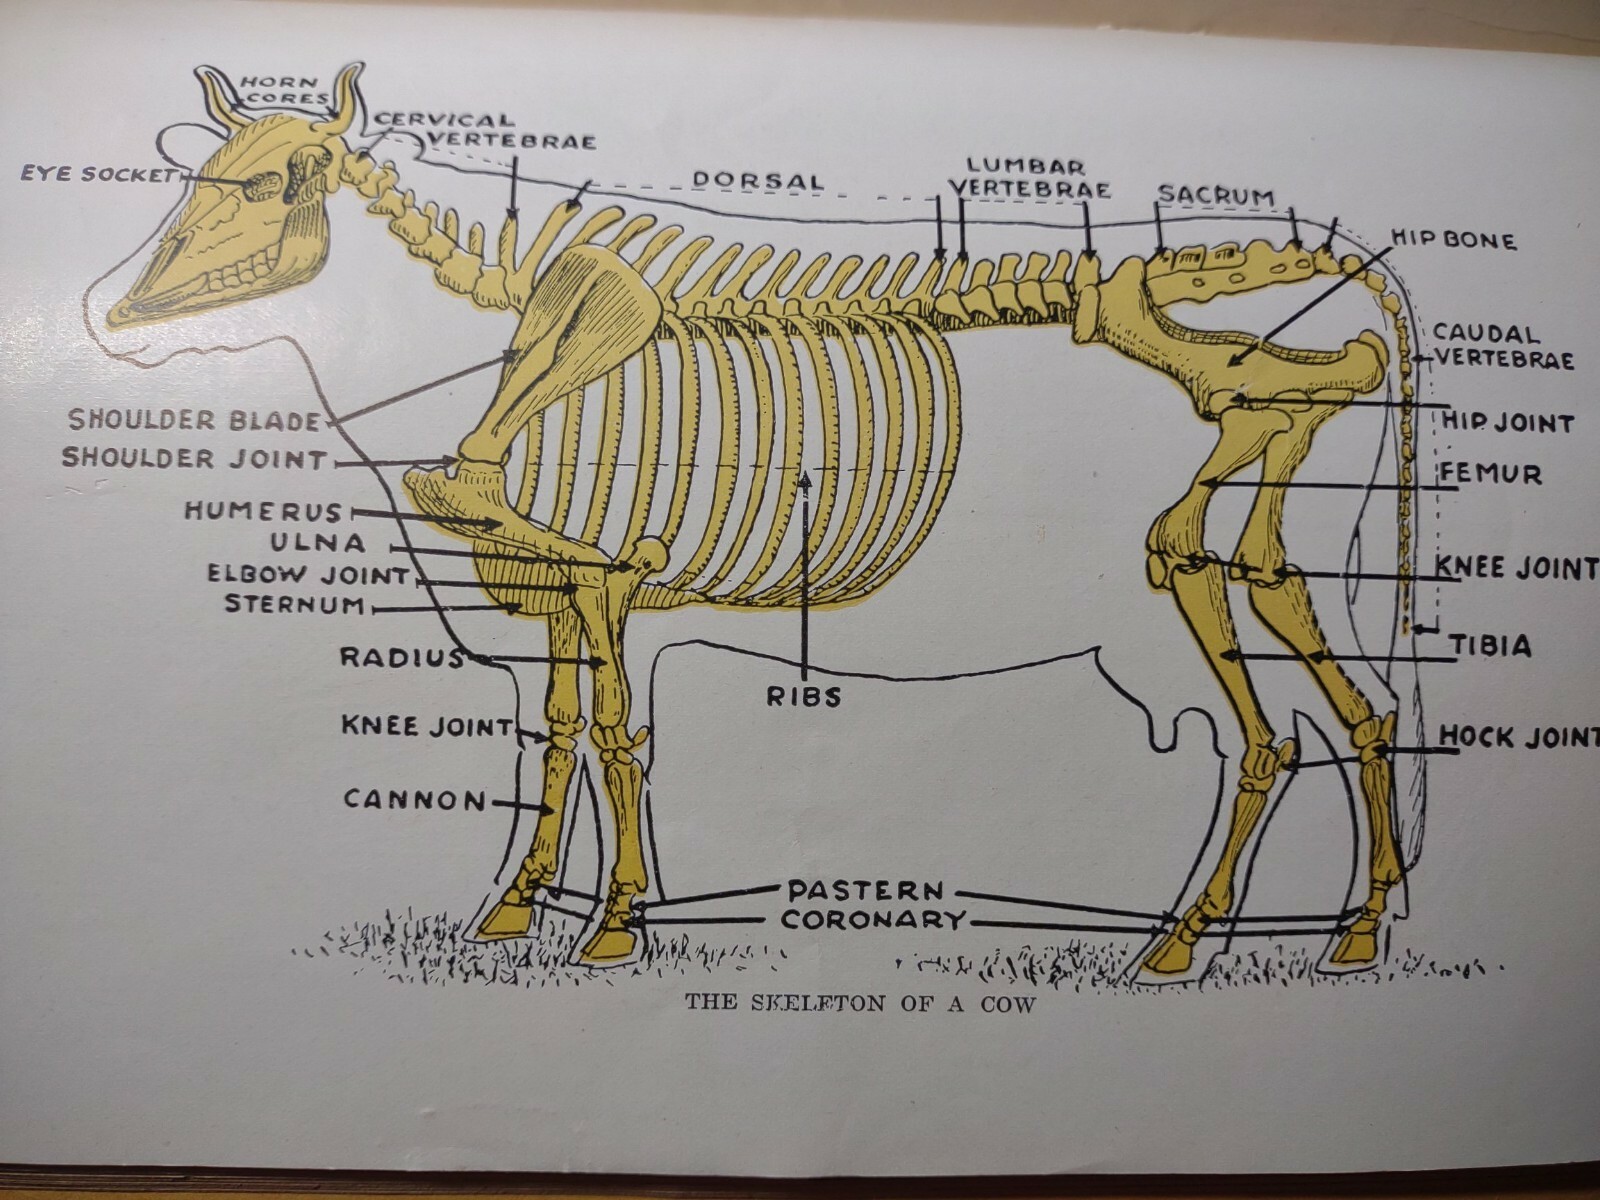 HORN
CORES
CERVICAL
VERTEBRAE
EYE SOCKET
DORSAL
LUMBAR
VERTEBRAE
SACRUM
HIP BONE
CAUDAL
VERTEBRAE
SHOULDER BLADE
HIP JOINT
SHOULDER JOINT
FEMUR
HUMERUS
ULNA
ELBOW JOINT
KNEE JOINT
STERNUM
RADIUS
TIBIA
RIBS
KNEE JOINT
HOCK JOINT
CANNON
PASTERN
CORONARY
THE SKELETON OF A COW